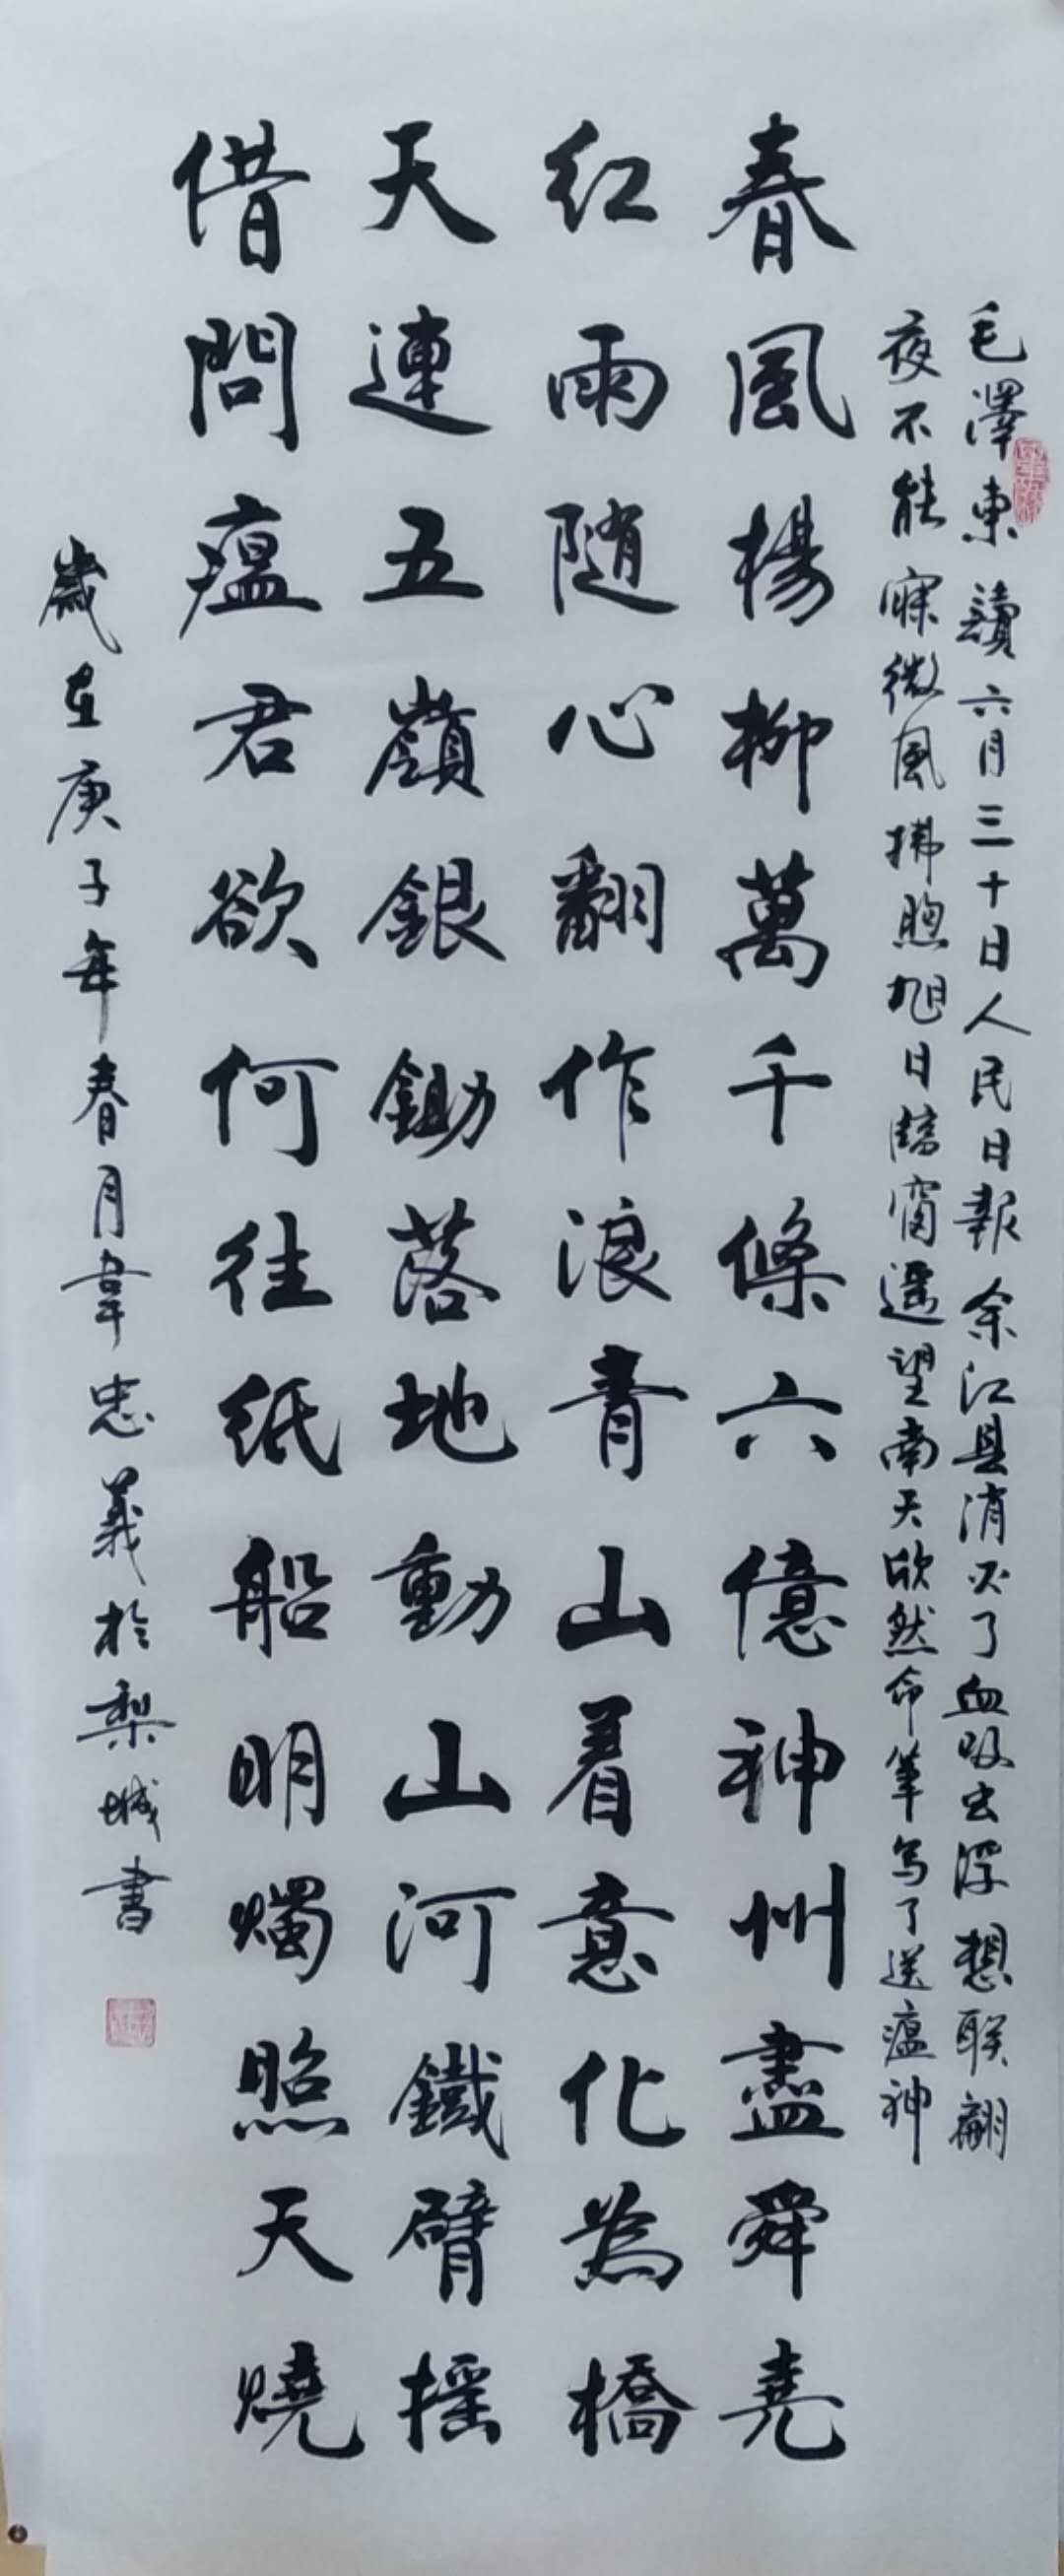 毛澤東讀六月三十日人民日報余江县消灭了血吸虫浮想联翩
夜不能寐微風拂煦旭日臨窗遥望南天欣然命筆写了送瘟神
春風楊柳萬千條六億神州盡舜堯
红雨随心翻作浪青山着意化為橋
天連五嶺銀鋤落地動山河鐵臂摇
借問瘟君欲何往纸船明燭照天燒
歲在庚子年春月韋忠義於梨城書